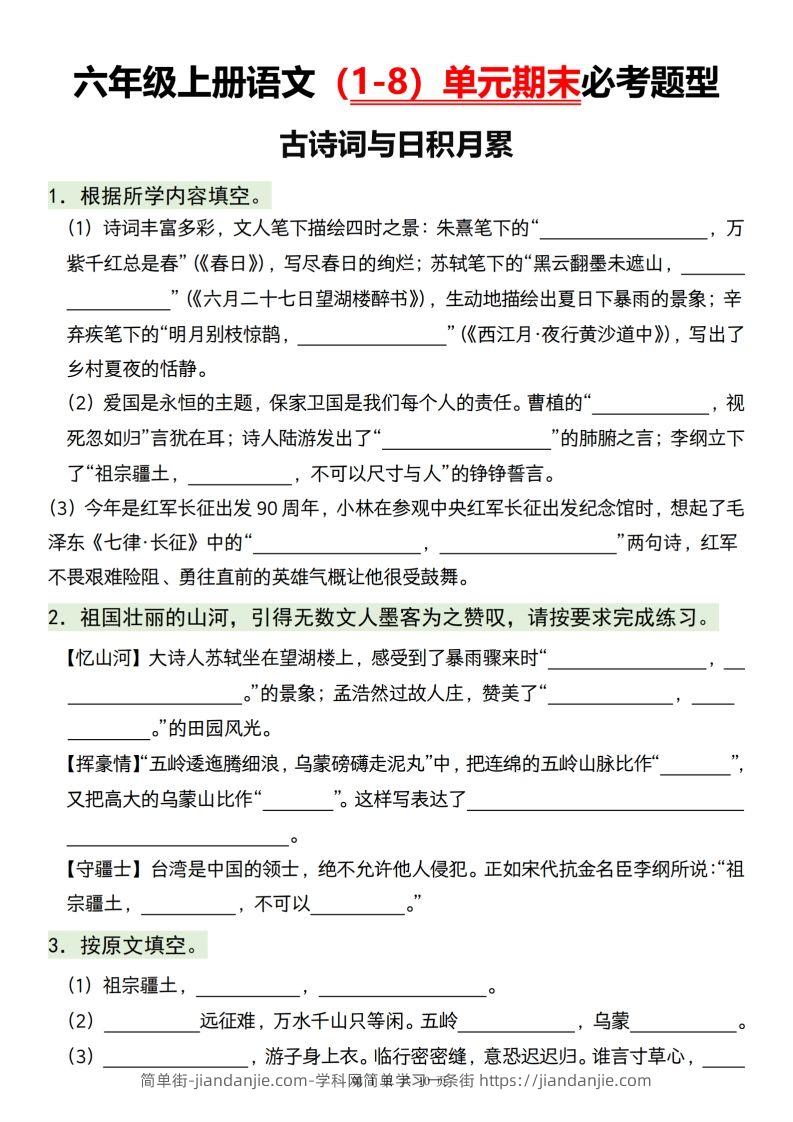 六年级上册语文（1-8）单元期末必考题型
古诗词与日积月累
1．根据所学内容填空。
（1）诗词丰富多彩，文人笔下描绘四时之景：朱熹笔下的“________________，万
紫千红总是春”（《春日》），写尽春日的绚烂；苏轼笔下的“黑云翻墨未遮山，______
__________”（《六月二十七日望湖楼醉书》），生动地描绘出夏日下暴雨的景象；辛
弃疾笔下的“明月别枝惊鹊，______________”（《西江月·夜行黄沙道中》），写出了
乡村夏夜的恬静。
（2）爱国是永恒的主题，保家卫国是我们每个人的责任。曹植的“___________，视
死忽如归”言犹在耳；诗人陆游发出了“________________”的肺腑之言；李纲立下
了“祖宗疆土，__________，不可以尺寸与人”的铮铮誓言。
（3）今年是红军长征出发 90 周年，小林在参观中央红军长征出发纪念馆时，想起了毛
泽东《七律·长征》中的“________________，________________”两句诗，红军
不畏艰难险阻、勇往直前的英雄气概让他很受鼓舞。
2．祖国壮丽的山河，引得无数文人墨客为之赞叹，请按要求完成练习。
【忆山河】大诗人苏轼坐在望湖楼上，感受到了暴雨骤来时“_______________，__
________________。”的景象；孟浩然过故人庄，赞美了“____________，____
________。”的田园风光。
【挥豪情】“五岭逶迤腾细浪，乌蒙磅礴走泥丸”中，把连绵的五岭山脉比作“_______”，
又把高大的乌蒙山比作“_______”。这样写表达了__________________________
_____________________。
【守疆士】台湾是中国的领士，绝不允许他人侵犯。正如宋代抗金名臣李纲所说：“祖
宗疆土，_________，不可以_________。”
3．按原文填空。
（1）祖宗疆土，__________，________________。
（2）_________远征难，万水千山只等闲。五岭___________，乌蒙__________。
（3）______________，游子身上衣。临行密密缝，意恐迟迟归。谁言寸草心，____
简单街-jiandanjie.com-学科网简单学习一条街 https://jiandanjie.com